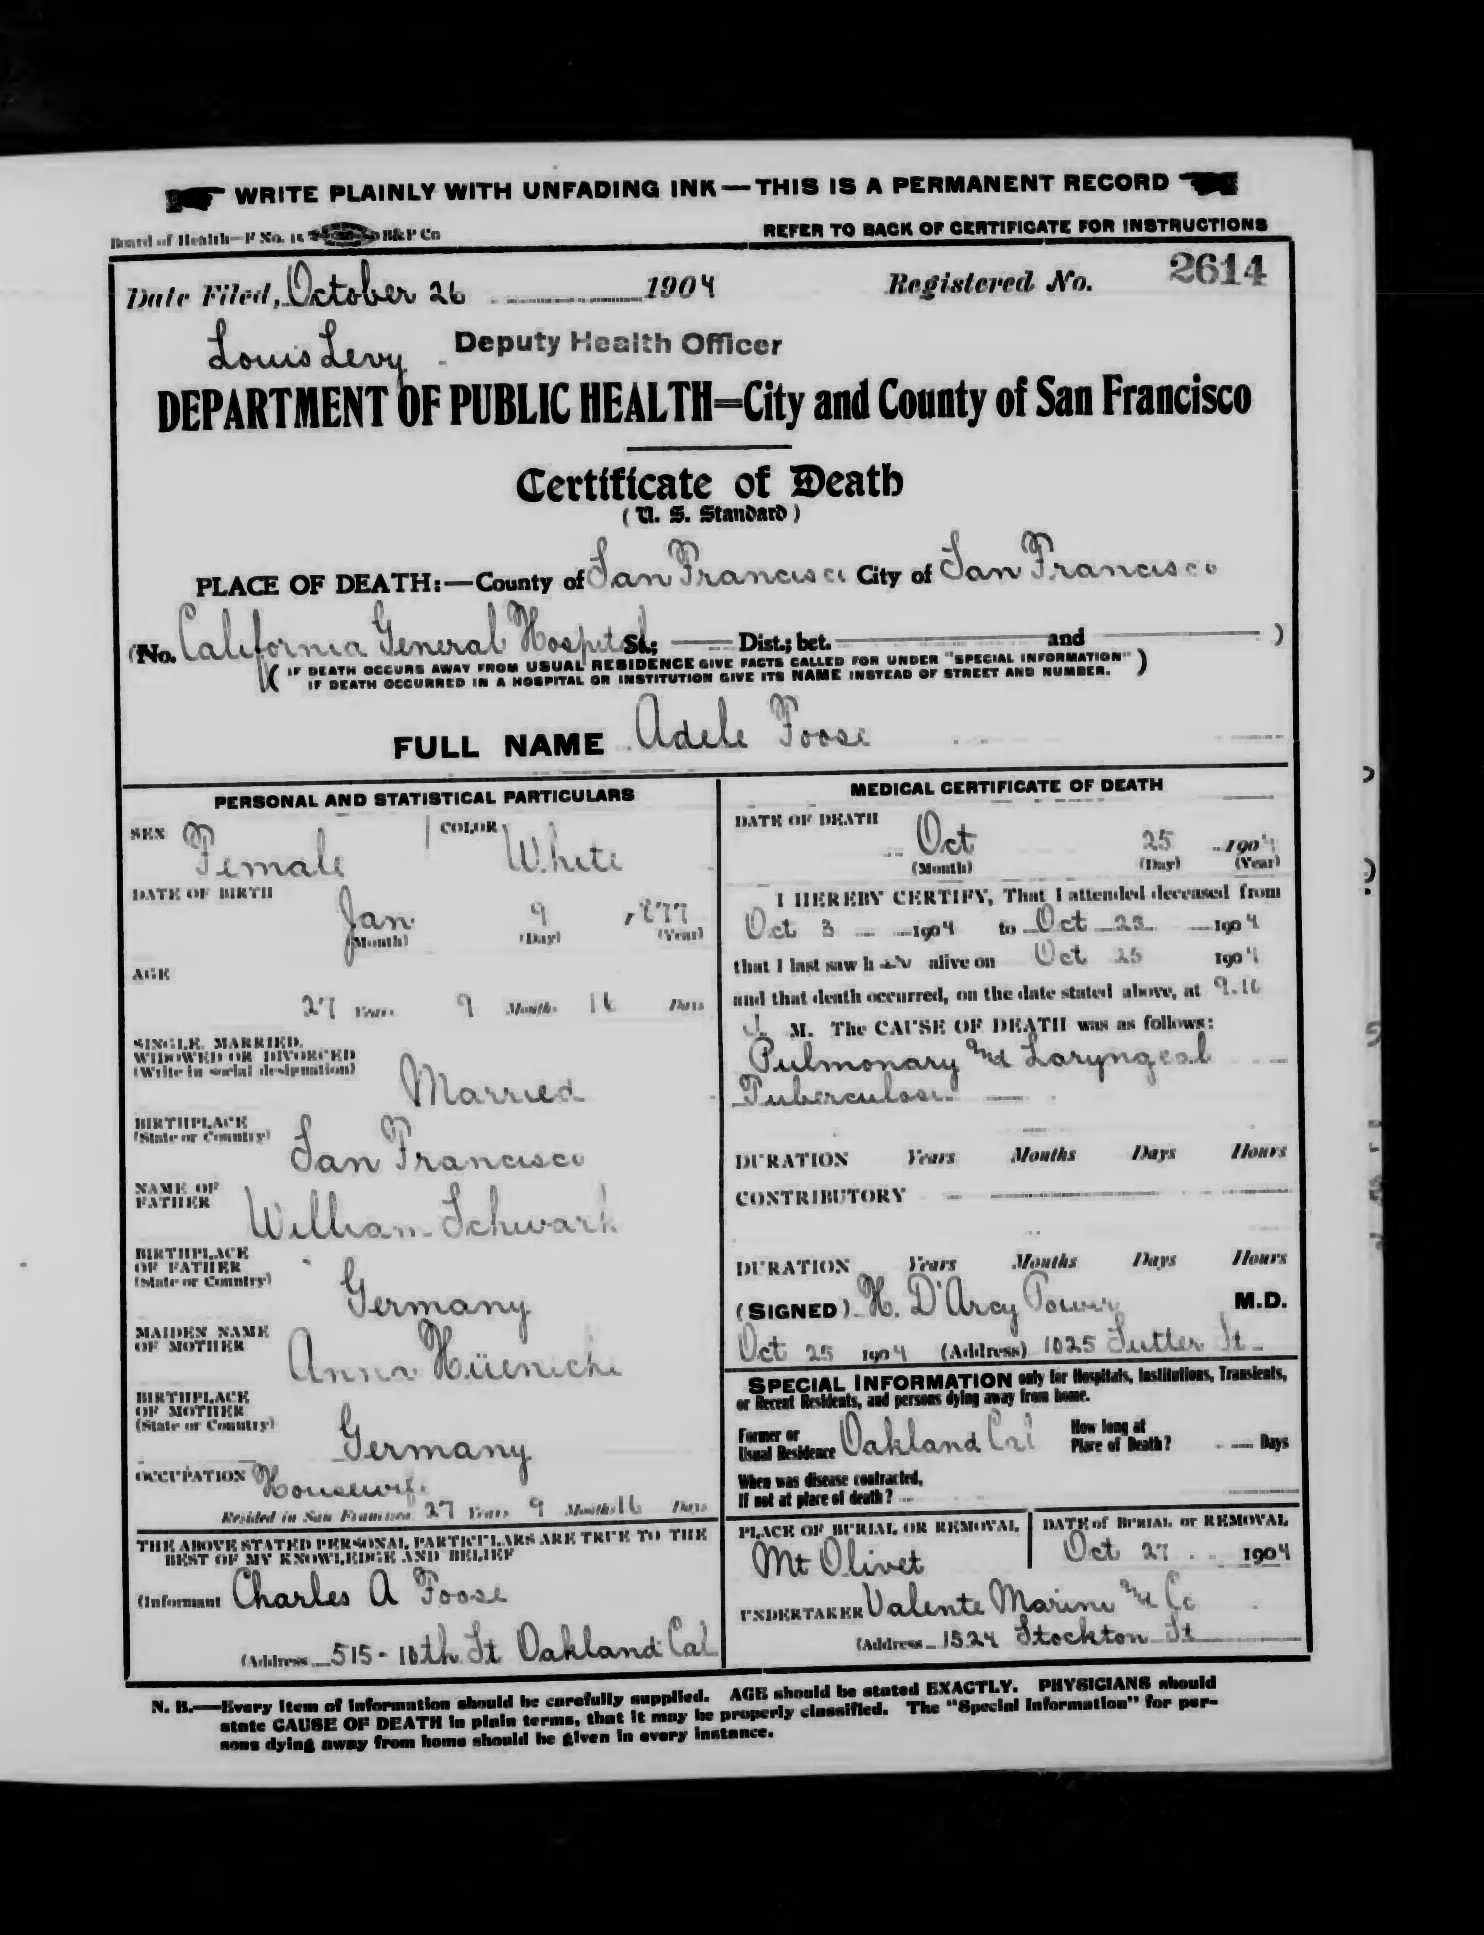 WRITE PLAINLY WITH UNFADING INK—THIS IS A PERMANENT RECORD
Board of Health—F No. 15 B&P Co
REFER TO BACK OF CERTIFICATE FOR INSTRUCTIONS
Date Filed, October 26 1904 Registered No. 2614
Louis Levy Deputy Health Officer
DEPARTMENT OF PUBLIC HEALTH=City and County of San Francisco
Certificate of Death
(U. S. Standard)
PLACE OF DEATH:—County of San Francisco City of San Francisco
(No. California General Hospital St.; Dist.; bet. and )
( IF DEATH OCCURS AWAY FROM USUAL RESIDENCE GIVE FACTS CALLED FOR UNDER "SPECIAL INFORMATION" )
IF DEATH OCCURRED IN A HOSPITAL OR INSTITUTION GIVE ITS NAME INSTEAD OF STREET AND NUMBER.
FULL NAME Adele Foose
PERSONAL AND STATISTICAL PARTICULARS
SEX Female COLOR White
DATE OF BIRTH
Jan 9 1877
(Month) (Day) (Year)
AGE
27 Years 9 Months 16 Days
SINGLE, MARRIED,
WIDOWED OR DIVORCED
(Write in social designation) Married
BIRTHPLACE
(State or Country) San Francisco
NAME OF
FATHER William
BIRTHPLACE
OF FATHER
(State or Country) Germany
MAIDEN NAME
OF MOTHER Anna
BIRTHPLACE
OF MOTHER
(State or Country) Germany
OCCUPATION Housewife
Resided in San Francisco 27 Years 9 Months 16 Days
THE ABOVE STATED PERSONAL PARTICULARS ARE TRUE TO THE
BEST OF MY KNOWLEDGE AND BELIEF
(Informant Charles A Foose
(Address 515-10th St Oakland Cal
MEDICAL CERTIFICATE OF DEATH
DATE OF DEATH
Oct 25 1904
(Month) (Day) (Year)
I HEREBY CERTIFY, That I attended deceased from
Oct 3 1904 to Oct 25 1904
that I last saw h er alive on Oct 25 1904
and that death occurred, on the date stated above, at
M. The CAUSE OF DEATH was as follows:
Pulmonary and Laryngeal
Tuberculosis
DURATION Years Months Days Hours
CONTRIBUTORY
DURATION Years Months Days Hours
(SIGNED) H. D'Arcy Power M.D.
Oct 25 1904 (Address) 1025 Sutter St
SPECIAL INFORMATION only for Hospitals, Institutions, Transients,
or Recent Residents, and persons dying away from home.
Former or
Usual Residence Oakland Cal
How long at
Place of Death? Days
When was disease contracted,
If not at place of death?
PLACE OF BURIAL OR REMOVAL
Mt Olivet
DATE of BURIAL or REMOVAL
Oct 27 1904
UNDERTAKER Valente Marini and Co
(Address 1524 Stockton St
N. B.—Every item of information should be carefully supplied. AGE should be stated EXACTLY. PHYSICIANS should
state CAUSE OF DEATH in plain terms, that it may be properly classified. The "Special Information" for per-
sons dying away from home should be given in every instance.